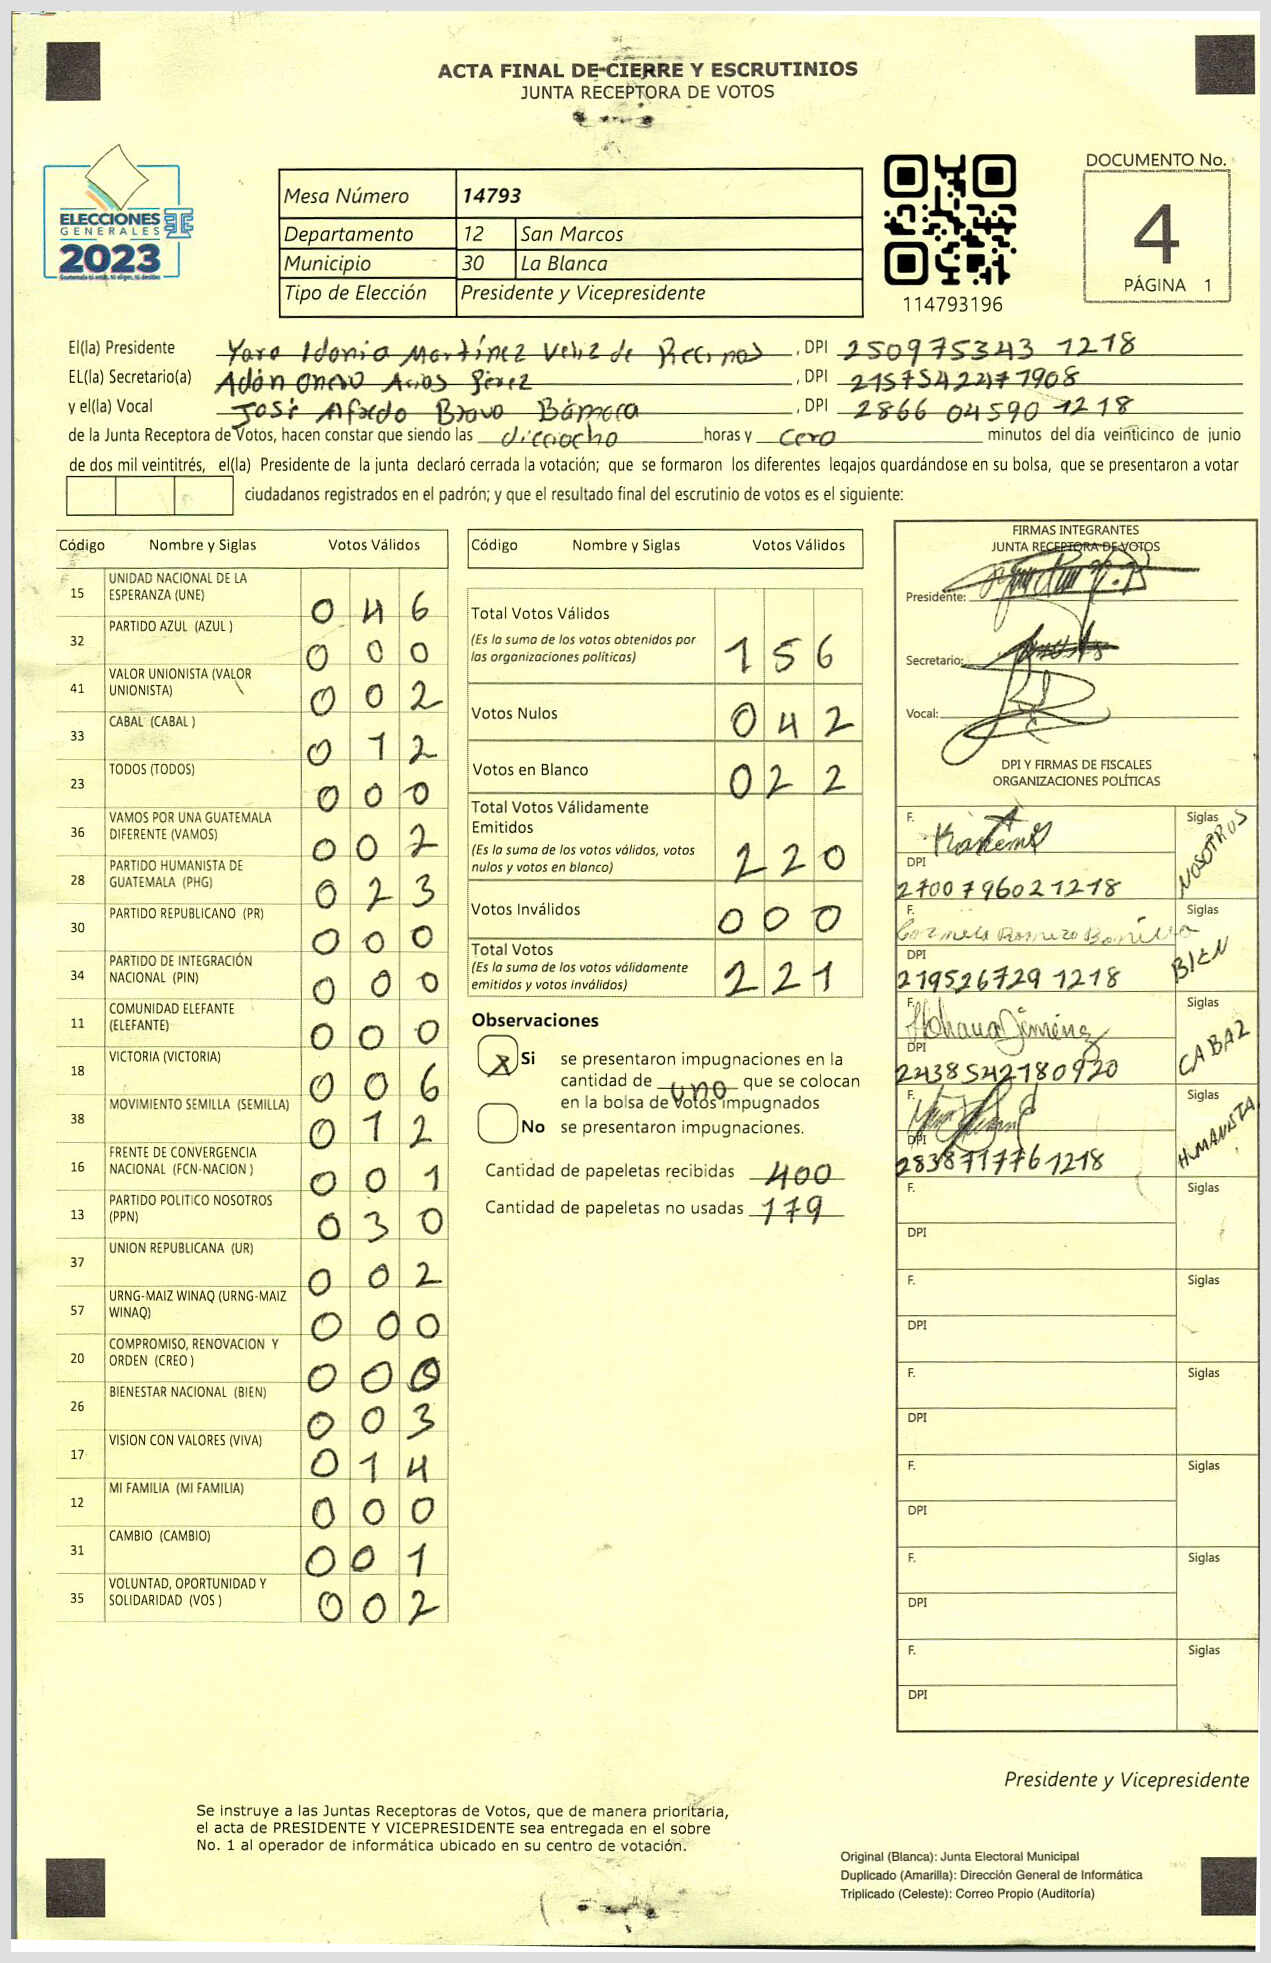 ACTA FINAL DE CIERRE Y ESCRUTINIOS
JUNTA RECEPTORA DE VOTOS
ELECCIONES
GENERALES
2023
Mesa Número 14793
Departamento 12 San Marcos
Municipio 30 La Blanca
Tipo de Elección Presidente y Vicepresidente
114793196
DOCUMENTO No.
4
PÁGINA 1
El(la) Presidente Yara Idonia Martínez Veliz de Recinos, DPI 250975343 1218
EL(la) Secretario(a) Adán Arios Pérez, DPI
y el(la) Vocal José Alfredo Bravo Bámaca, DPI 2866 04590 1218
de la Junta Receptora de Votos, hacen constar que siendo las dieciocho horas y cero minutos del día veinticinco de junio
de dos mil veintitrés, el(la) Presidente de la junta declaró cerrada la votación; que se formaron los diferentes legajos guardándose en su bolsa, que se presentaron a votar
ciudadanos registrados en el padrón; y que el resultado final del escrutinio de votos es el siguiente:
Código Nombre y Siglas Votos Válidos
15 UNIDAD NACIONAL DE LA ESPERANZA (UNE) 0 4 6
32 PARTIDO AZUL (AZUL ) 0 0 0
41 VALOR UNIONISTA (VALOR UNIONISTA) 0 0 2
33 CABAL (CABAL ) 0 1 2
23 TODOS (TODOS) 0 0 0
36 VAMOS POR UNA GUATEMALA DIFERENTE (VAMOS) 0 0 2
28 PARTIDO HUMANISTA DE GUATEMALA (PHG) 0 2 3
30 PARTIDO REPUBLICANO (PR) 0 0 0
34 PARTIDO DE INTEGRACIÓN NACIONAL (PIN) 0 0 0
11 COMUNIDAD ELEFANTE (ELEFANTE) 0 0 0
18 VICTORIA (VICTORIA) 0 0 6
38 MOVIMIENTO SEMILLA (SEMILLA) 0 1 2
16 FRENTE DE CONVERGENCIA NACIONAL (FCN-NACION ) 0 0 1
13 PARTIDO POLITICO NOSOTROS (PPN) 0 3 0
37 UNION REPUBLICANA (UR) 0 0 2
57 URNG-MAIZ WINAQ (URNG-MAIZ WINAQ) 0 0 0
20 COMPROMISO, RENOVACION Y ORDEN (CREO ) 0 0 0
26 BIENESTAR NACIONAL (BIEN) 0 0 3
17 VISION CON VALORES (VIVA) 0 1 4
12 MI FAMILIA (MI FAMILIA) 0 0 0
31 CAMBIO (CAMBIO) 0 0 1
35 VOLUNTAD, OPORTUNIDAD Y SOLIDARIDAD (VOS ) 0 0 2
Código Nombre y Siglas Votos Válidos
Total Votos Válidos 1 5 6
(Es la suma de los votos obtenidos por
las organizaciones políticas)
Votos Nulos 0 4 2
Votos en Blanco 0 2 2
Total Votos Válidamente
Emitidos 2 2 0
(Es la suma de los votos válidos, votos
nulos y votos en blanco)
Votos Inválidos 0 0 0
Total Votos 2 2 1
(Es la suma de los votos válidamente
emitidos y votos inválidos)
Observaciones
x Si se presentaron impugnaciones en la
cantidad de uno que se colocan
en la bolsa de votos impugnados
No se presentaron impugnaciones.
Cantidad de papeletas recibidas 400
Cantidad de papeletas no usadas 179
FIRMAS INTEGRANTES
JUNTA RECEPTORA DE VOTOS
Presidente:
Secretario:
Vocal:
DPI Y FIRMAS DE FISCALES
ORGANIZACIONES POLÍTICAS
F. Siglas NOSOTROS
DPI 2700796021218
F. Carmela Romero Bonilla Siglas BIEN
DPI 219526729 1218
F. Siglas CABAL
DPI 2438542180920
F. Siglas HUMANISTA
DPI 2838717761218
F. Siglas
DPI
F. Siglas
DPI
F. Siglas
DPI
F. Siglas
DPI
F. Siglas
DPI
F. Siglas
DPI
Presidente y Vicepresidente
Se instruye a las Juntas Receptoras de Votos, que de manera prioritaria,
el acta de PRESIDENTE Y VICEPRESIDENTE sea entregada en el sobre
No. 1 al operador de informática ubicado en su centro de votación.
Original (Blanca): Junta Electoral Municipal
Duplicado (Amarilla): Dirección General de Informática
Triplicado (Celeste): Correo Propio (Auditoría)